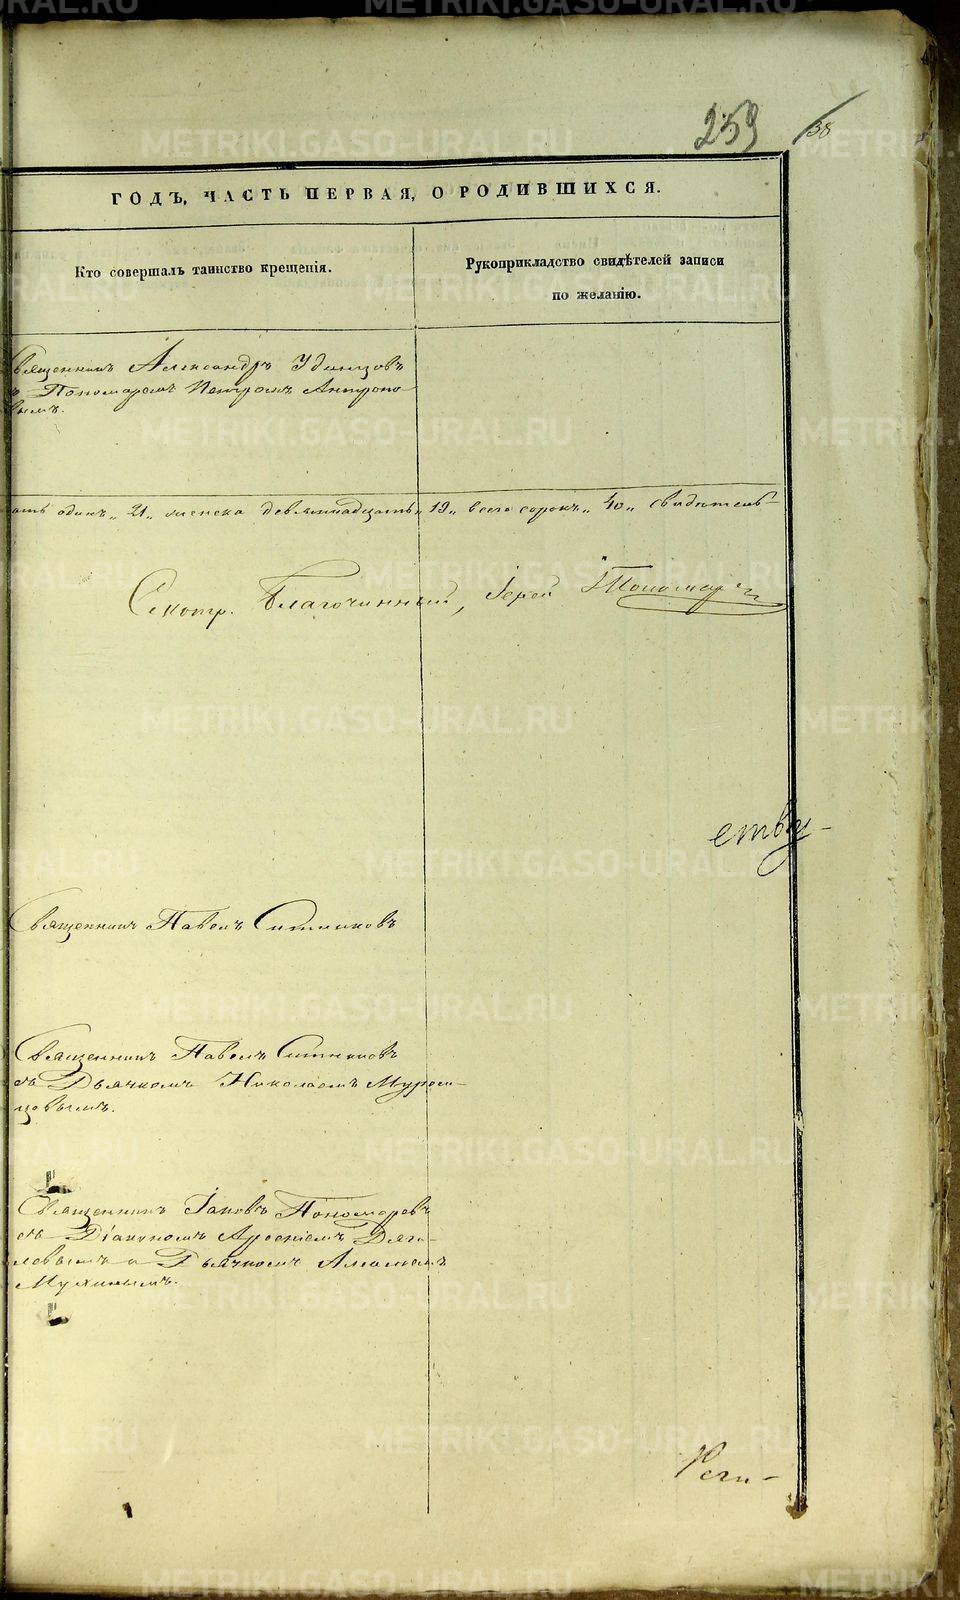 259
38
ГОДЪ, ЧАСТЬ ПЕРВАЯ, О РОДИВШИХСЯ.
Кто совершалъ таинство крещенія.
Рукоприкладство свидѣтелей записи
по желанію.
Священникъ Александръ Удинцовъ
съ Пономаремъ Петромъ Антропо
вымъ.
одинъ „ 21 „ женска девятнадцать „ 19 „ всего сорокъ „ 40 „ свидѣтель-
Смотр. Благочинный, Іерей Пономаревъ
ству-
Священникъ Павелъ Ситниковъ
Священникъ Павелъ Ситниковъ
съ Дьячкомъ Николаемъ
цовымъ.
Священникъ Іаковъ Пономаревъ
съ Діакономъ Арсеніемъ Дяги-
левымъ и Дьячкомъ
Мухинымъ.
METRIKI.GASO-URAL.RU